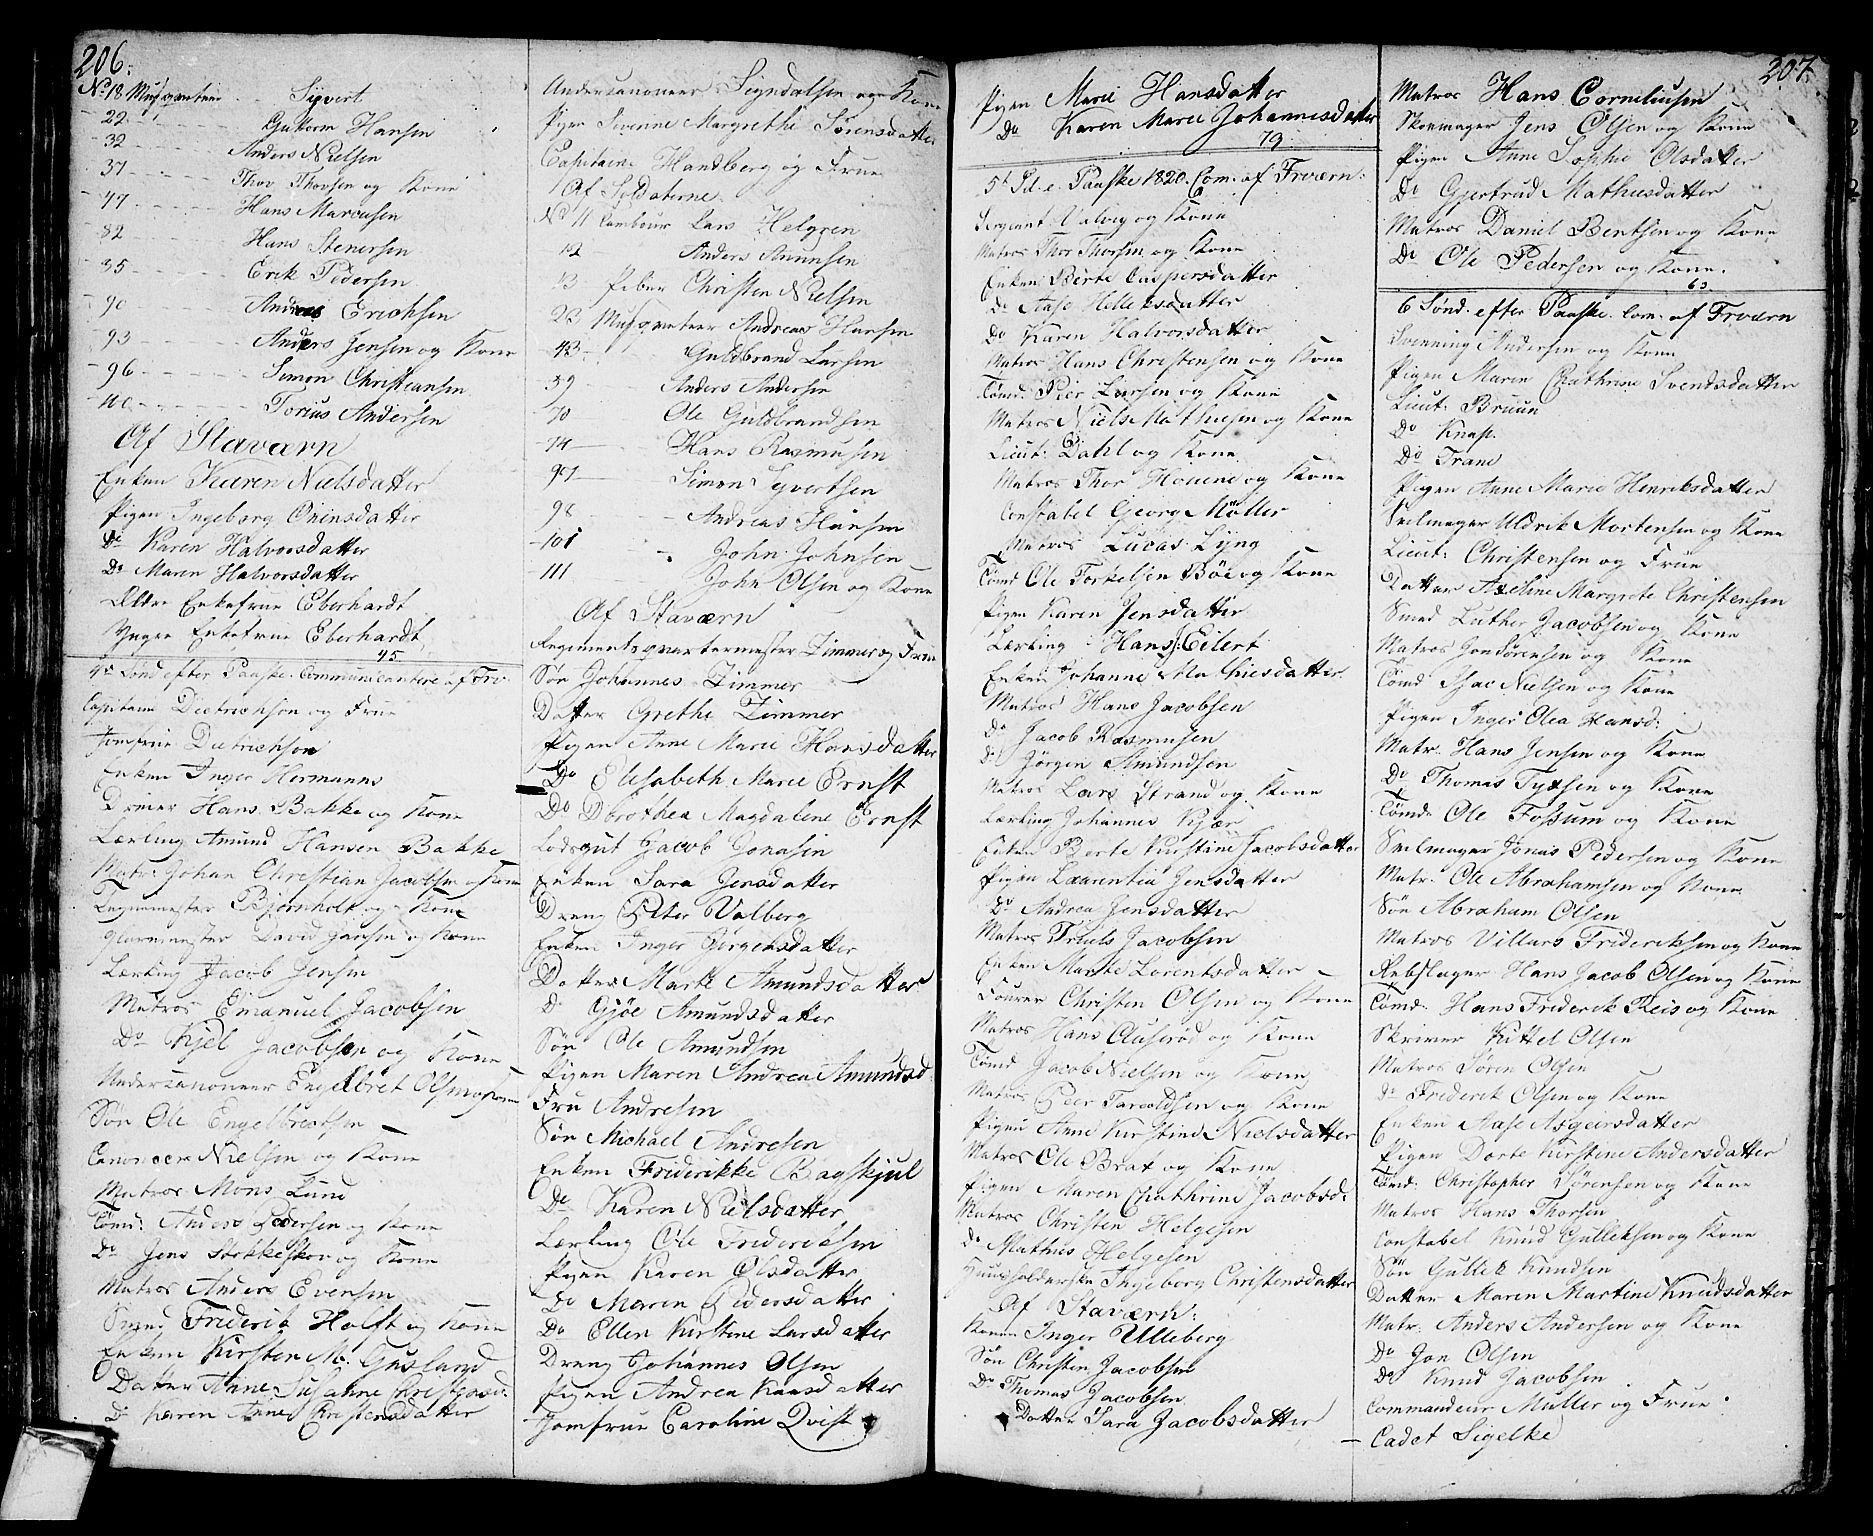 206.
No 18 Musqueteer Syvert
22 Guttorm Hansen
32 Anders Nielsen
37 Thor Thorsen og Kone
47 Hans Marcusen
82 Hans Stenersen
85 Erik Pedersen
90 Andreas Erichsen
93 Anders Jensen og Kone
96 Simon Christiansen
100 Torius Andersen
Af Staværn
Enken Karen Nielsdatter
Pigen Ingeborg Oninsdatter
Do Karen Halvorsdatter
Do Maren Halvorsdatter
Ældre Enkefrue Eberhardt
Yngre Enkefrue Eberhardt
45
4de Sønd efter Paaske Communicantere af Frv.
Capitain Dietrichson og Frue
Jomfrue Dietrichson
Enken Inger Hermanns
Dreier Hans Bakke og Kone
Lærling Amund Hansen Bakke
Matr: Johan Christian Jacobsen og Kone
Tegnmester Bjørnholt og Kone
Glarmester David Jansen og Kone
Lærling Jacob Jensen
Matros Emanuel Jacobsen
Do Kjel Jacobsen og Kone
Undercanoneer Engelbret Olsen og Kone
Søn Ole Engelbrechtsen
Canoneer Nielsen og Kone
Matros Mons Lund
Tømd: Anders Pedersen og Kone
Do Jens Stokkeskov og Kone
Matros Anders Evensen
Smed Friderik Holst og Kone
Enken Kirsten M: Gusland
Datter Anne Susanne Christensd:
Do Karen Anne Christensdatter
Undercanoneer Signdalsen og Kone
Pigen Severine Margrethe Sørensdatter
Capitain Handberg og Frue
Af Soldaterne
No 11 Tambour Lars Helgren
12 Anders Amnsen
13 Piber Christen Nielsen
23 Musqueteer Andreas Hansen
43 Guldbrand Larsen
59 Anders Andersen
70 Ole Guldbrandsen
74 Hans Rasmusen
97 Simon Syvertsen
98 Andreas Hansen
101 John Johnsen
111 John Olsen og Kone
Af Staværn
Regimentsquartermester Zimmer og Frue
Søn Johannes Zimmer
Datter Grethe Zimmer
Pigen Anne Marie Hansdatter
Do Elisabeth Marie Ernst
Do Dorothea Magdalene Ernst
Lodsgut Jacob Jonasen
Enken Sara Jensdatter
Dreng Peter Valberg
Enken Inger Jørgensdatter
Datter Marte Amundsdatter
Do Gjøe Amundsdatter
Søn Ole Amundsen
Pigen Maren Andrea Amundsd.
Fru Andresen
Søn Michael Andresen
Enken Friderikke Bagskjul
Do Karen Nielsdatter
Lærling Ole Frideriksen
Pigen Karen Olsdatter
Do Maren Pedersdatter
Do Ellen Kirstine Larsdatter
Dreng Johannes Olsen
Pigen Andrea Hansdatter
Jomfrue Caroline Qvist
207.
Pigen Marie Hansdatter
Do Karen Marie Johannesdatter
79
5t Sd. e. Paaske 1820. Com. af Frværn:
Sergeant Valvig og Kone
Matros Thor Thorsen og Kone
Enken Børte Caspersdatter
Do Aase Helleksdatter
Do Karen Halvorsdatter
Matros Hans Christensen og Kone
Tømd: Peer Larsen og Kone
Matros Niels Mathiesen og Kone
Lieut: Dahl og Kone
Matros Thor Honene og Kone
Constabel Georg Møller
Matros Lucas Lyng
Tømd Ole Torkelsen Böe og Kone
Pigen Karen Jensdatter
Lærling Hans Eilert
Enken Johanne Mathiesdatter
Matros Hans Jacobsen
Do Jacob Rasmusen
Do Jørgen Amundsen
Matros Lars Strand og Kone
Lærling Johannes Kjær
Enken Berte Kirstine Jacobsdatter
Pigen Laurentia Jensdatter
Do Andrea Jensdatter
Matros Truels Jacobsen
Enken Marte Lorentsdatter
Fourer Christen Olsen og Kone
Matros Hans Auserød og Kone
Tømd Jacob Nielsen og Kone
Matros Peer Taraldsen og Kone
Pigen Anne Kirstine Nielsdatter
Matros Ole Brat og Kone
Pigen Maren Chathrine Jacobsd:
Matros Christen Helgesen
Do Mathies Helgesen
Huusholderske Ingeborg Christensdatter
Af Staværn:
Konen Inger Ulleberg
Søn Christen Jacobsen
Do Thomas Jacobsen
Datter Sara Jacobsdatter
Matros Hans Corneliusen
Skomager Jens Olsen og Kone
Pigen Anne Sophie Olsdatter
Do Gjertrud Mathiesdatter
Matros Daniel Bentsen og Kone
Do Ole Pedersen og Kone.
63
6 Sønd. efter Paaske. Com. af Frværn
Svenning Andersen og Kone
Pigen Maren Chathrine Svendsdatter
Lieut: Bruun
Do Knap.
Do Trane
Pigen Anne Marie Henriksdatter
Seilmager Uldrik Mortensen og Kone
Lieut: Christensen og Frue
Datter Axeline Margrete Christensen
Smed Luther Jacobsen og Kone
Matros Jon Sørensen og Kone
Tømd Isac Nielsen og Kone
Pigen Inger Olea Hansd:
Matr. Hans Jensen og Kone
Do Thomas Tyttsen og Kone
Tømd: Ole Fossum og Kone
Seilmager Jonas Pedersen og Kone
Matr. Ole Abrahamsen og Kone
Søn Abraham Olsen
Matros Villars Frideriksen og Kone
Rebslager Hans Jacob Olsen og Kone
Tømd: Hans Friderik Reis og Kone
Skriver Kittel Olsen
Matros Søren Olsen
Do Friderik Olsen og Kone
Enken Aase Asgeirsdatter
Pigen Dorte Kirstine Andersdatter
Tømd: Christopher Sørensen og Kone
Matros Hans Thorsen
Constabel Knud Gulleksen og Kone
Søn Gullek Knudsen
Datter Maren Martine Knudsdatter
Matr. Anders Andersen og Kone
Do Jon Olsen
Do Knud Jacobsen
Commandeur Müller og Frue
Cadet Sigelke